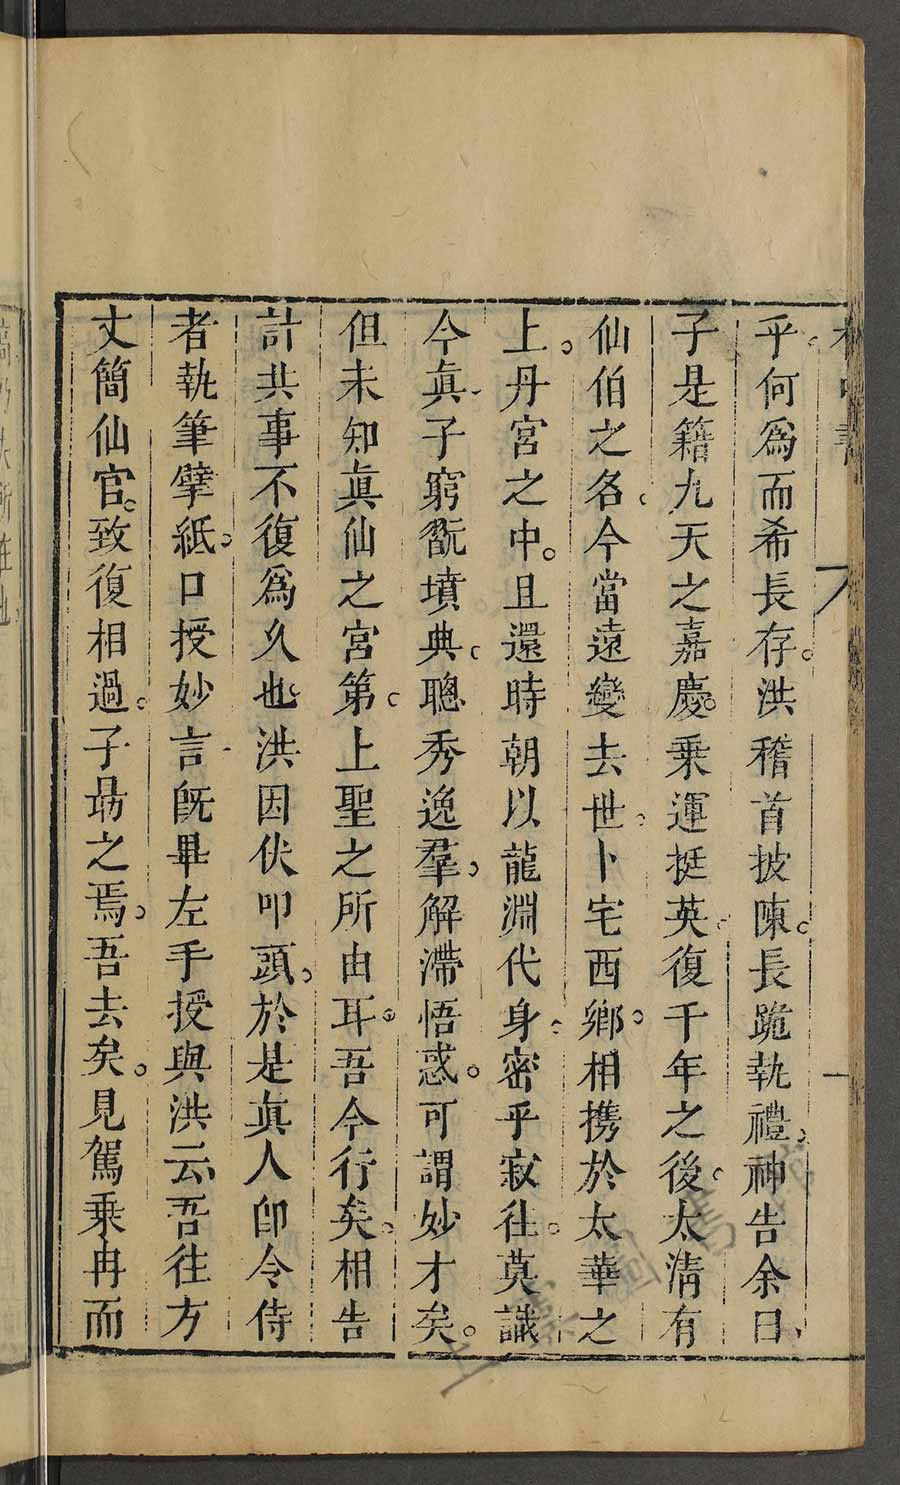 枕中書
乎何爲而希長存。洪稽首披陳。長跪執禮。神告余曰
子是籍九天之嘉慶。乗運挺英。復千年之後。太清有
仙伯之名。今當遠變去世。卜宅西鄉。相携於太華之
上。丹宮之中。且還時朝以龍淵代身。密乎寂往。莫識
今眞子窮翫墳典。聰秀逸羣。解滯悟惑。可謂妙才矣。
但未知眞仙之宮第。上聖之所由耳。吾今行矣。相告
計共事不復爲久也洪因伏叩頭。於是眞人卽令侍
者執筆擘紙。口授妙言旣畢左手授與洪云吾往方
丈簡仙官。致復相過。子勗之焉。吾去矣。見駕乗冉而